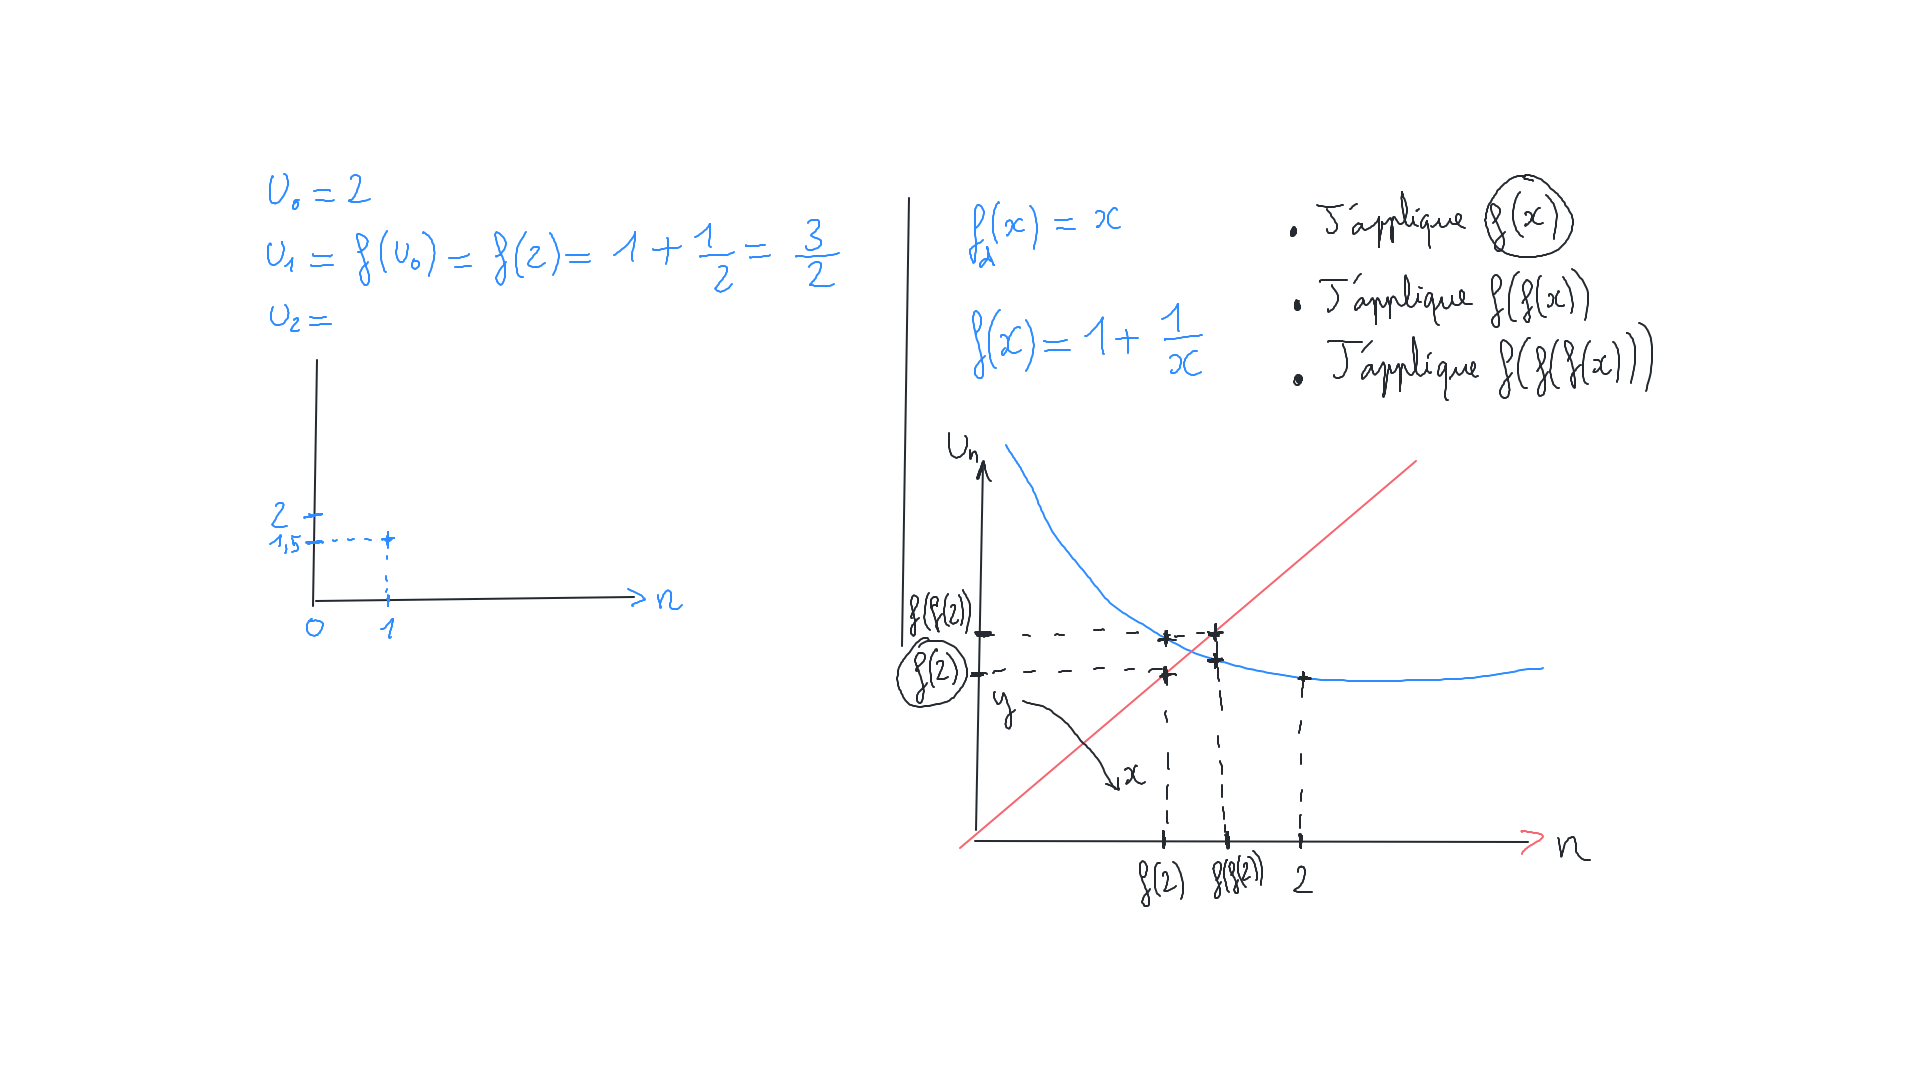 U₀ = 2
U₁ = f(U₀) = f(2) = 1 + 1/2 = 3/2
U₂ =
2
1,5
0 1 n
f_d(x) = x
f(x) = 1 + 1/x
• J'applique f(x)
• J'applique f(f(x))
• J'applique f(f(f(x)))
Uₙ
f(f(2))
f(2)
y
x
n
f(2) f(f(2)) 2